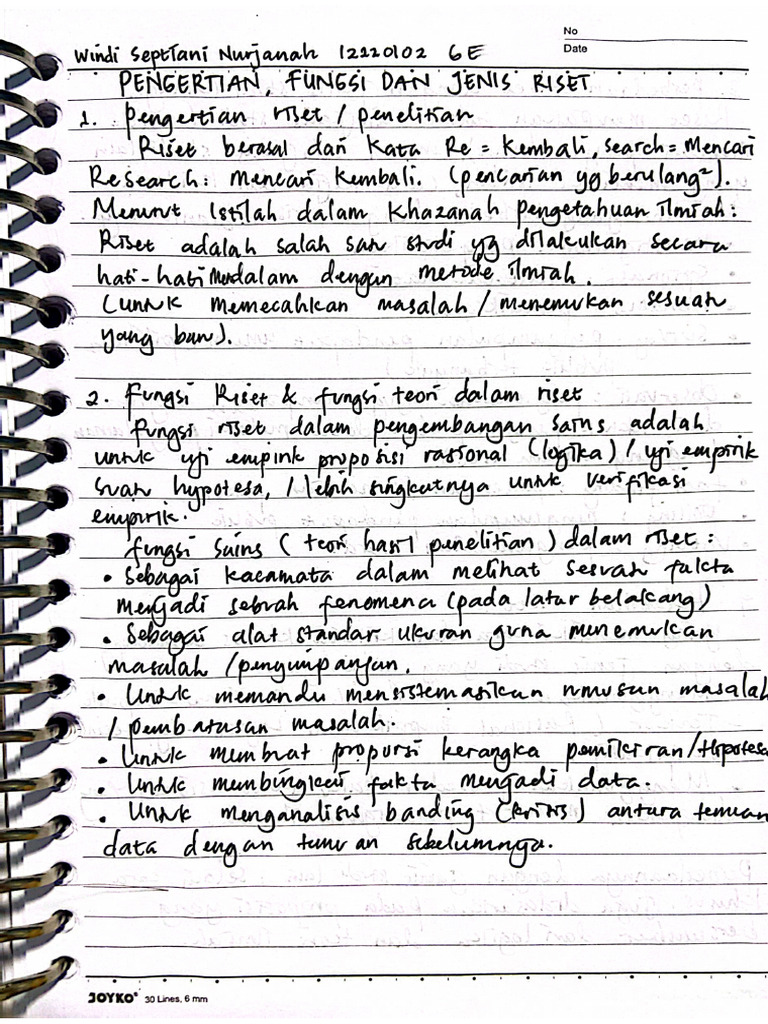 No
Date
Windi Septiani Nurjanah 12220102 6E
PENGERTIAN, FUNGSI DAN JENIS RISET
1. Pengertian riset / penelitian
Riset berasal dari Kata Re = Kembali, search = Mencari
Research : mencari kembali. (pencarian yg berulang²).
Menurut Istilah dalam Khazanah pengetahuan ilmiah :
Riset adalah salah satu studi yg dilakukan secara
hati-hati dalam dengan metode ilmiah.
(untuk memecahkan masalah / menemukan sesuatu
yang baru).
2. Fungsi Riset & fungsi teori dalam riset
fungsi riset dalam pengembangan sains adalah
untuk uji empirik proposisi rasional (logika) / uji empirik
suatu hypotesa, / lebih singkatnya untuk verifikasi
empirik.
fungsi Sains ( teori hasil penelitian ) dalam riset :
• Sebagai kacamata dalam melihat sesuatu fakta
menjadi sebuah fenomena (pada latar belakang)
• Sebagai alat standar ukuran guna menemukan
masalah / penyimpangan.
• Untuk memandu mensistemasikan rumusan masalah
/ pembatasan masalah.
• Untuk membuat propursi kerangka pemikiran/Hipotesa
• Untuk membingkai fakta menjadi data.
• Untuk menganalisis banding (kritis) antara temuan
data dengan temuan sebelumnya.
JOYKO® 30 Lines, 6 mm